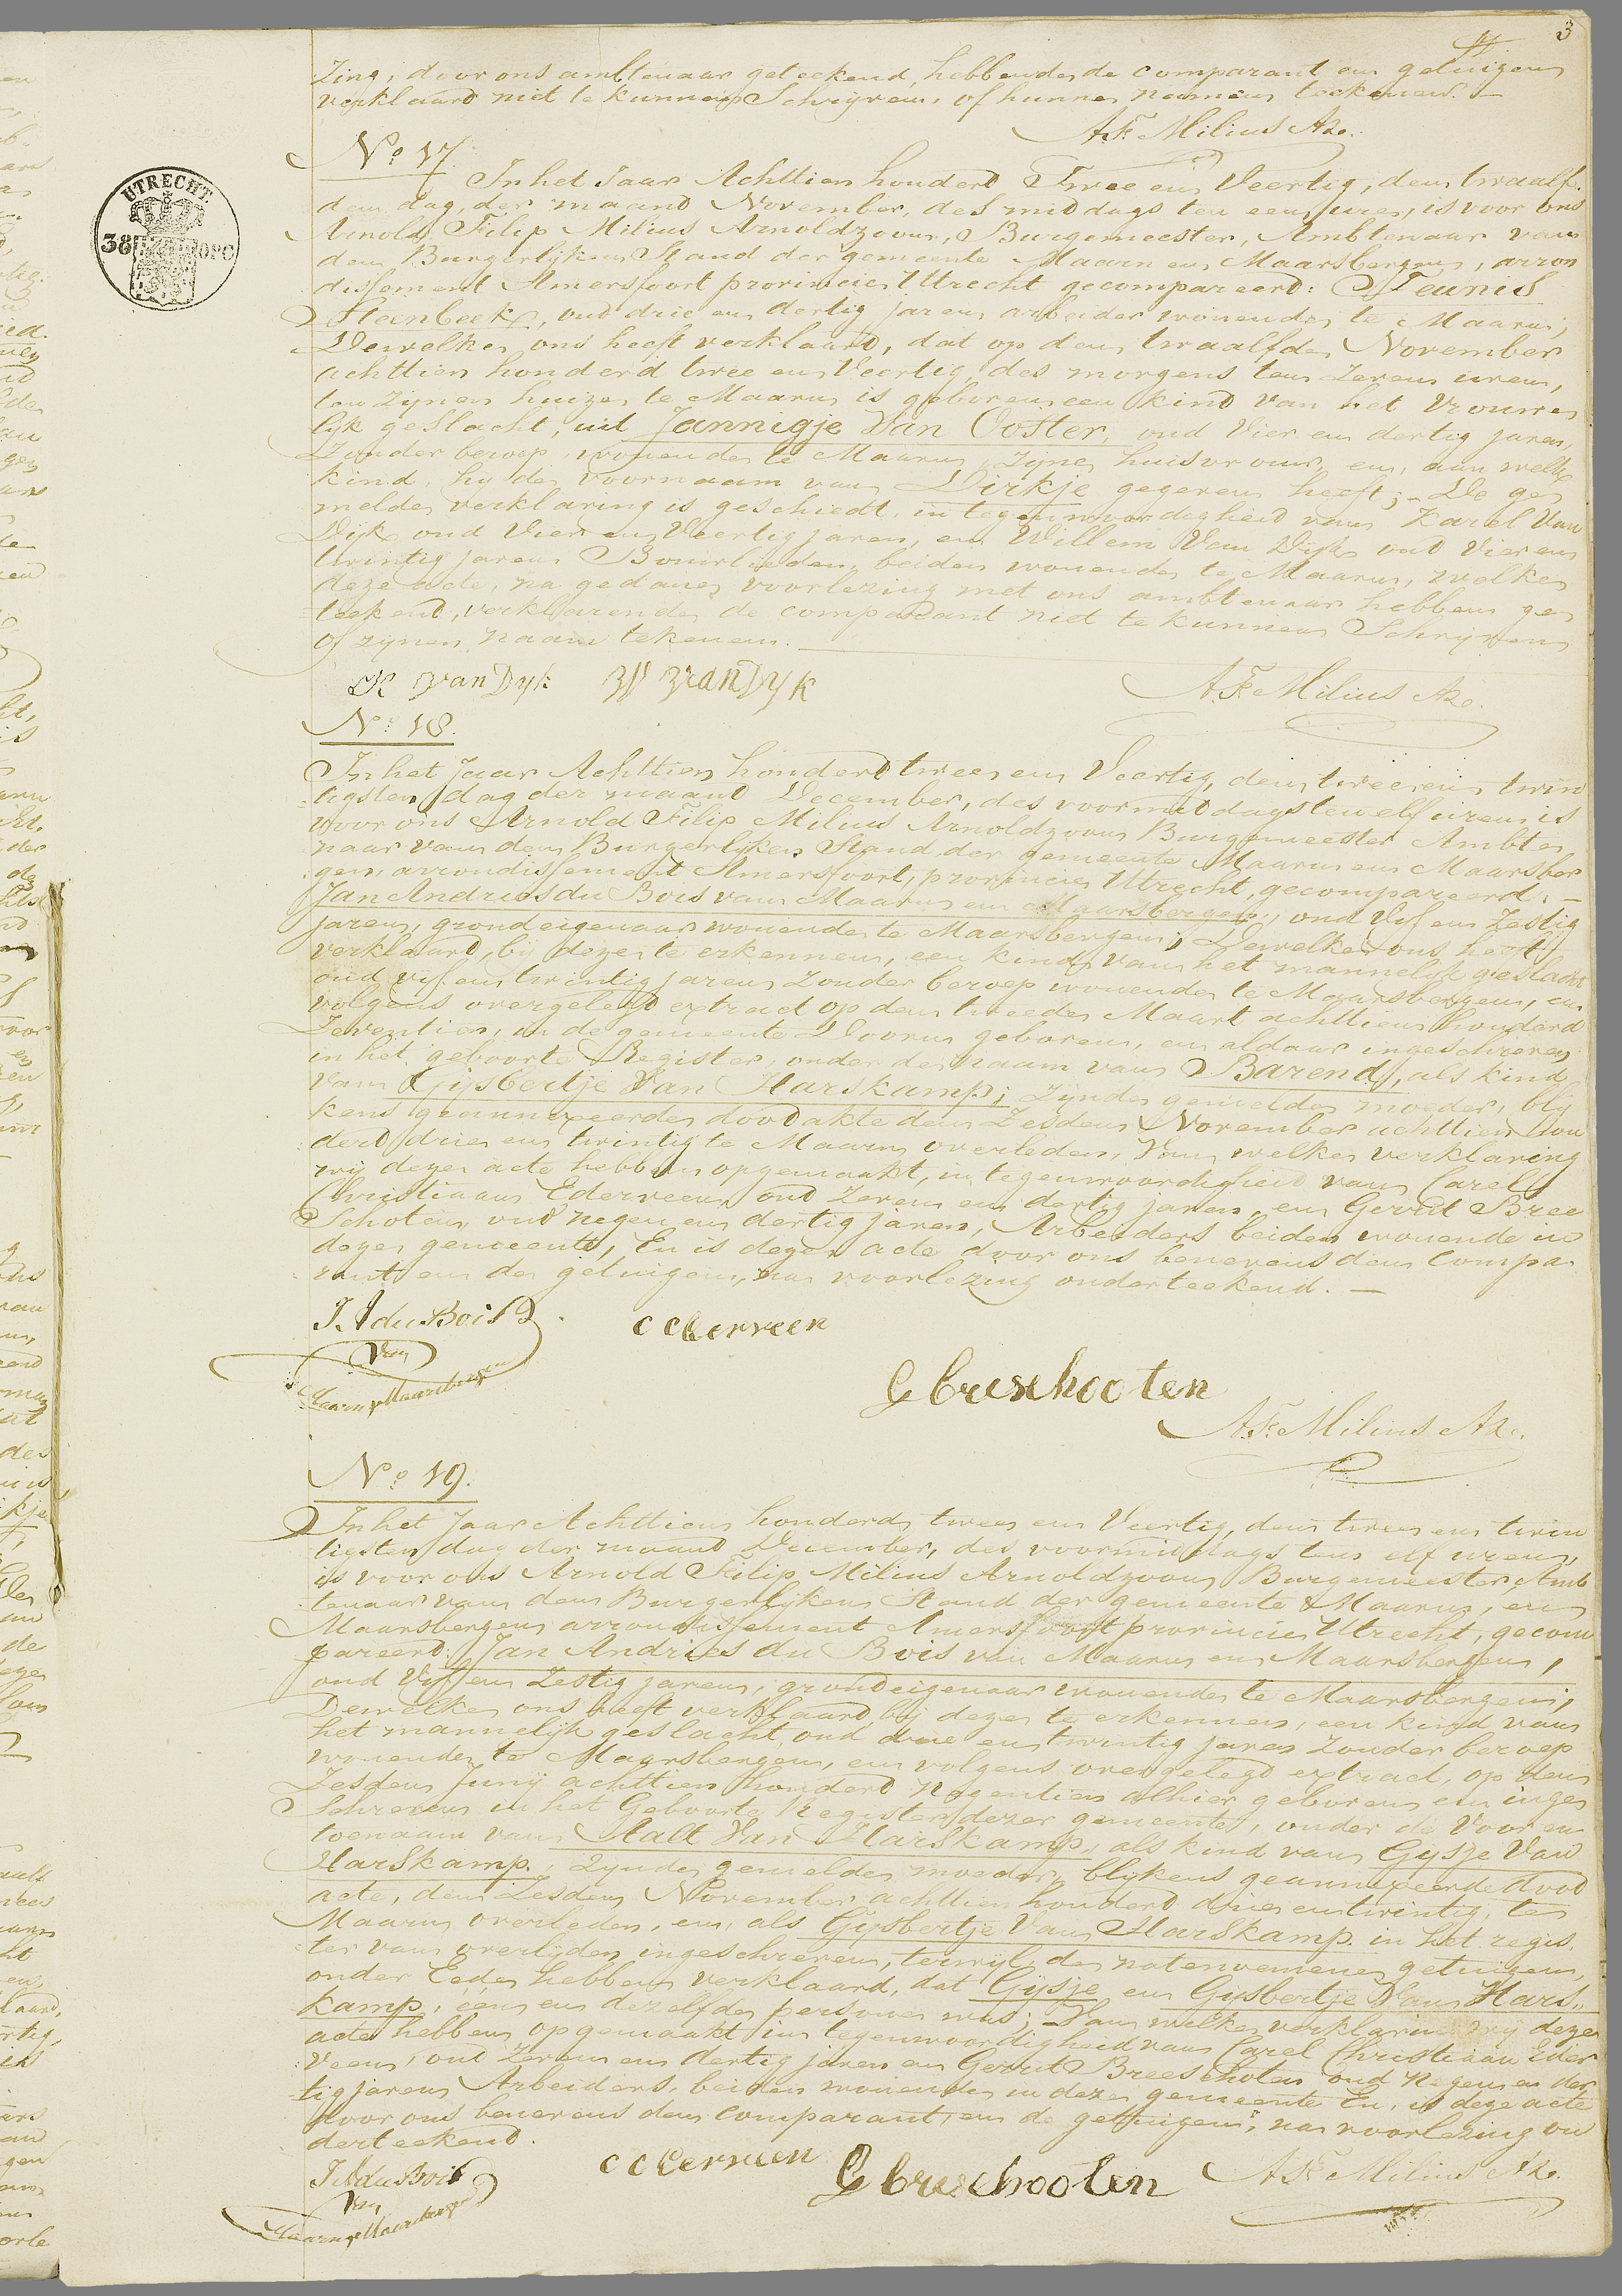 3
zing, door ons ambtenaar geteekend, hebbende de comparant en getuigen
verklaard niet te kunnen Schrijven, of hunne namen teekenen.
A. F. Milius Az.
No 17.
UTRECHT.
38 OPC
In het Jaar Achttien honderd Twee en Veertig, den twaalf
den dag, der maand November, des middags ten een ure, is voor ons
Arnold Filip Milius Arnoldzoon, Burgemeester, Ambtenaar van
den Burgerlijken Stand der gemeente Maarn en Maarsbergen, arron
dissement Amersfoort provincie Utrecht gecompareerd: Teunis
Steenbeek, oud drie en dertig jaren arbeider wonende te Maarn;
Dewelke ons heeft verklaard, dat op den twaalfde November
achttien honderd twee en Veertig, des morgens ten Zeven uren,
ten Zynen huize te Maarn is geboren een kind van het Vrouwe
lijk geslacht, uit Jannigje Van Ooster, oud Vier en dertig jaren,
Zonder beroep, wonende te Maarn, Zijne huisvrouw, en, aan welk
kind, hy de voornaam van Dirkje gegeven heeft; De ge
melde verklaring is geschiedt, in tegenwoordigheid van Karel Van
Dijk oud Vier en Veertig jaren, en Willem Van Dijk oud Vier en
twintig jaren Bouwlieden, beiden wonende te Maarn, welke
deze acte, na gedane voorlezing met ons ambtenaar hebben ge
teekend, verklarende de comparant niet te kunnen Schrijven
of zijnen naam tekenen.
K van Dyk W van Dyk
A. F. Milius Az.
No 18.
In het Jaar Achttien honderd twee en Veertig, den twee en twin
tigsten dag der maand December, des voormiddags te elf uren is
voor ons Arnold Filip Milius Arnoldzoon Burgemeester Ambte
naar van den Burgerlijken Stand der gemeente Maarn en Maarsber
gen, arrondissement Amersfoort, provincie Utrecht, gecompareerd:
Jan Andries du Bois van Maarn en Maarsbergen, oud Vijf en Zestig
jaren, grondeigenaar wonende te Maarsbergen; Dewelke ons heeft
verklaard, bij deze te erkennen, een kind van het mannelijk geslacht
oud vijf en twintig jaren zonder beroep wonende te Maarsbergen, en
volgens overgelegd extract op den tweede Maart achttien honderd
Zeventien, in de gemeente Doorn geboren, en aldaar ingeschreven
in het geboorte Register, onder de naam van Barend, als kind
van Gijsbertje Van Harskamp; zijnde gemelde moeder, bly
kens geannexeerde doodakte den Zesden November achttien hon
derd drie en twintig te Maarn overleden, Van welke verklaring
wij deze acte hebben opgemaakt, in tegenwoordigheid van Carel
Christiaan Ederveen oud Zeven en dertig jaren, en Gerrit Bree
Schoten, oud negen en dertig jaren, Arbeiders beiden wonende in
deze gemeente, En is deze acte door ons benevens den Compa
rant en de getuigen, na voorlezing onderteekend.
J. A du Bois
van
Maarn & Maarsbergen
C C Ederveen
G breschooten
A. F. Milius Az.
No 19.
In het Jaar Achttien honderd twee en Veertig, den twee en twin
tigsten dag der maand December, des voormiddags ten elf uren,
is voor ons Arnold Filip Milius Arnoldzoon Burgemeester Amb
tenaar van den Burgerlijken Stand der gemeente Maarn, en
Maarsbergen arrondissement Amersfoort provincie Utrecht, gecom
pareerd: Jan Andries du Bois van Maarn en Maarsbergen,
oud Vijf en Zestig jaren, grondeigenaar wonende te Maarsbergen;
Dewelke ons heeft verklaard bij deze te erkennen, een kind van
het mannelijk geslacht, oud drie en twintig jaren Zonder beroep
wonende te Maarsbergen, en volgens overgelegd extract, op den
Zesden Junij achttien honderd Negentien alhier geboren en inge
Schreven in het Geboorte Register dezer gemeente, onder de Voor en
toenaam van Aalt Van Harskamp, als kind van Gijsje Van
Harskamp, zijnde gemelde moeder, blijkens geannexeerde dood
acte, den Zesden November achttien honderd drie en twintig, te
Maarn overleden, en, als Gijsbertje Van Harskamp in het regis
ter van overlijden ingeschreven, terwijl de natenoemene getuigen,
onder Eede hebben verklaard, dat Gijsje en Gijsbertje Van Hars
kamp, één en dezelfde persoon was; Van welke verklaring wij deze
acte hebben opgemaakt in tegenwoordigheid van Carel Christiaan Eder
veen, oud Zeven en dertig jaren en Gerrit Breeschoten oud Negen en der
tig jaren Arbeiders, beiden wonende in deze gemeente En, is deze acte
door ons benevens den Comparant, en de getuigen, na voorlezing on
derteekend.
J A du Bois
van
Maarn & Maarsbergen
C C Ederveen
G breschooten
A. F. Milius Az.